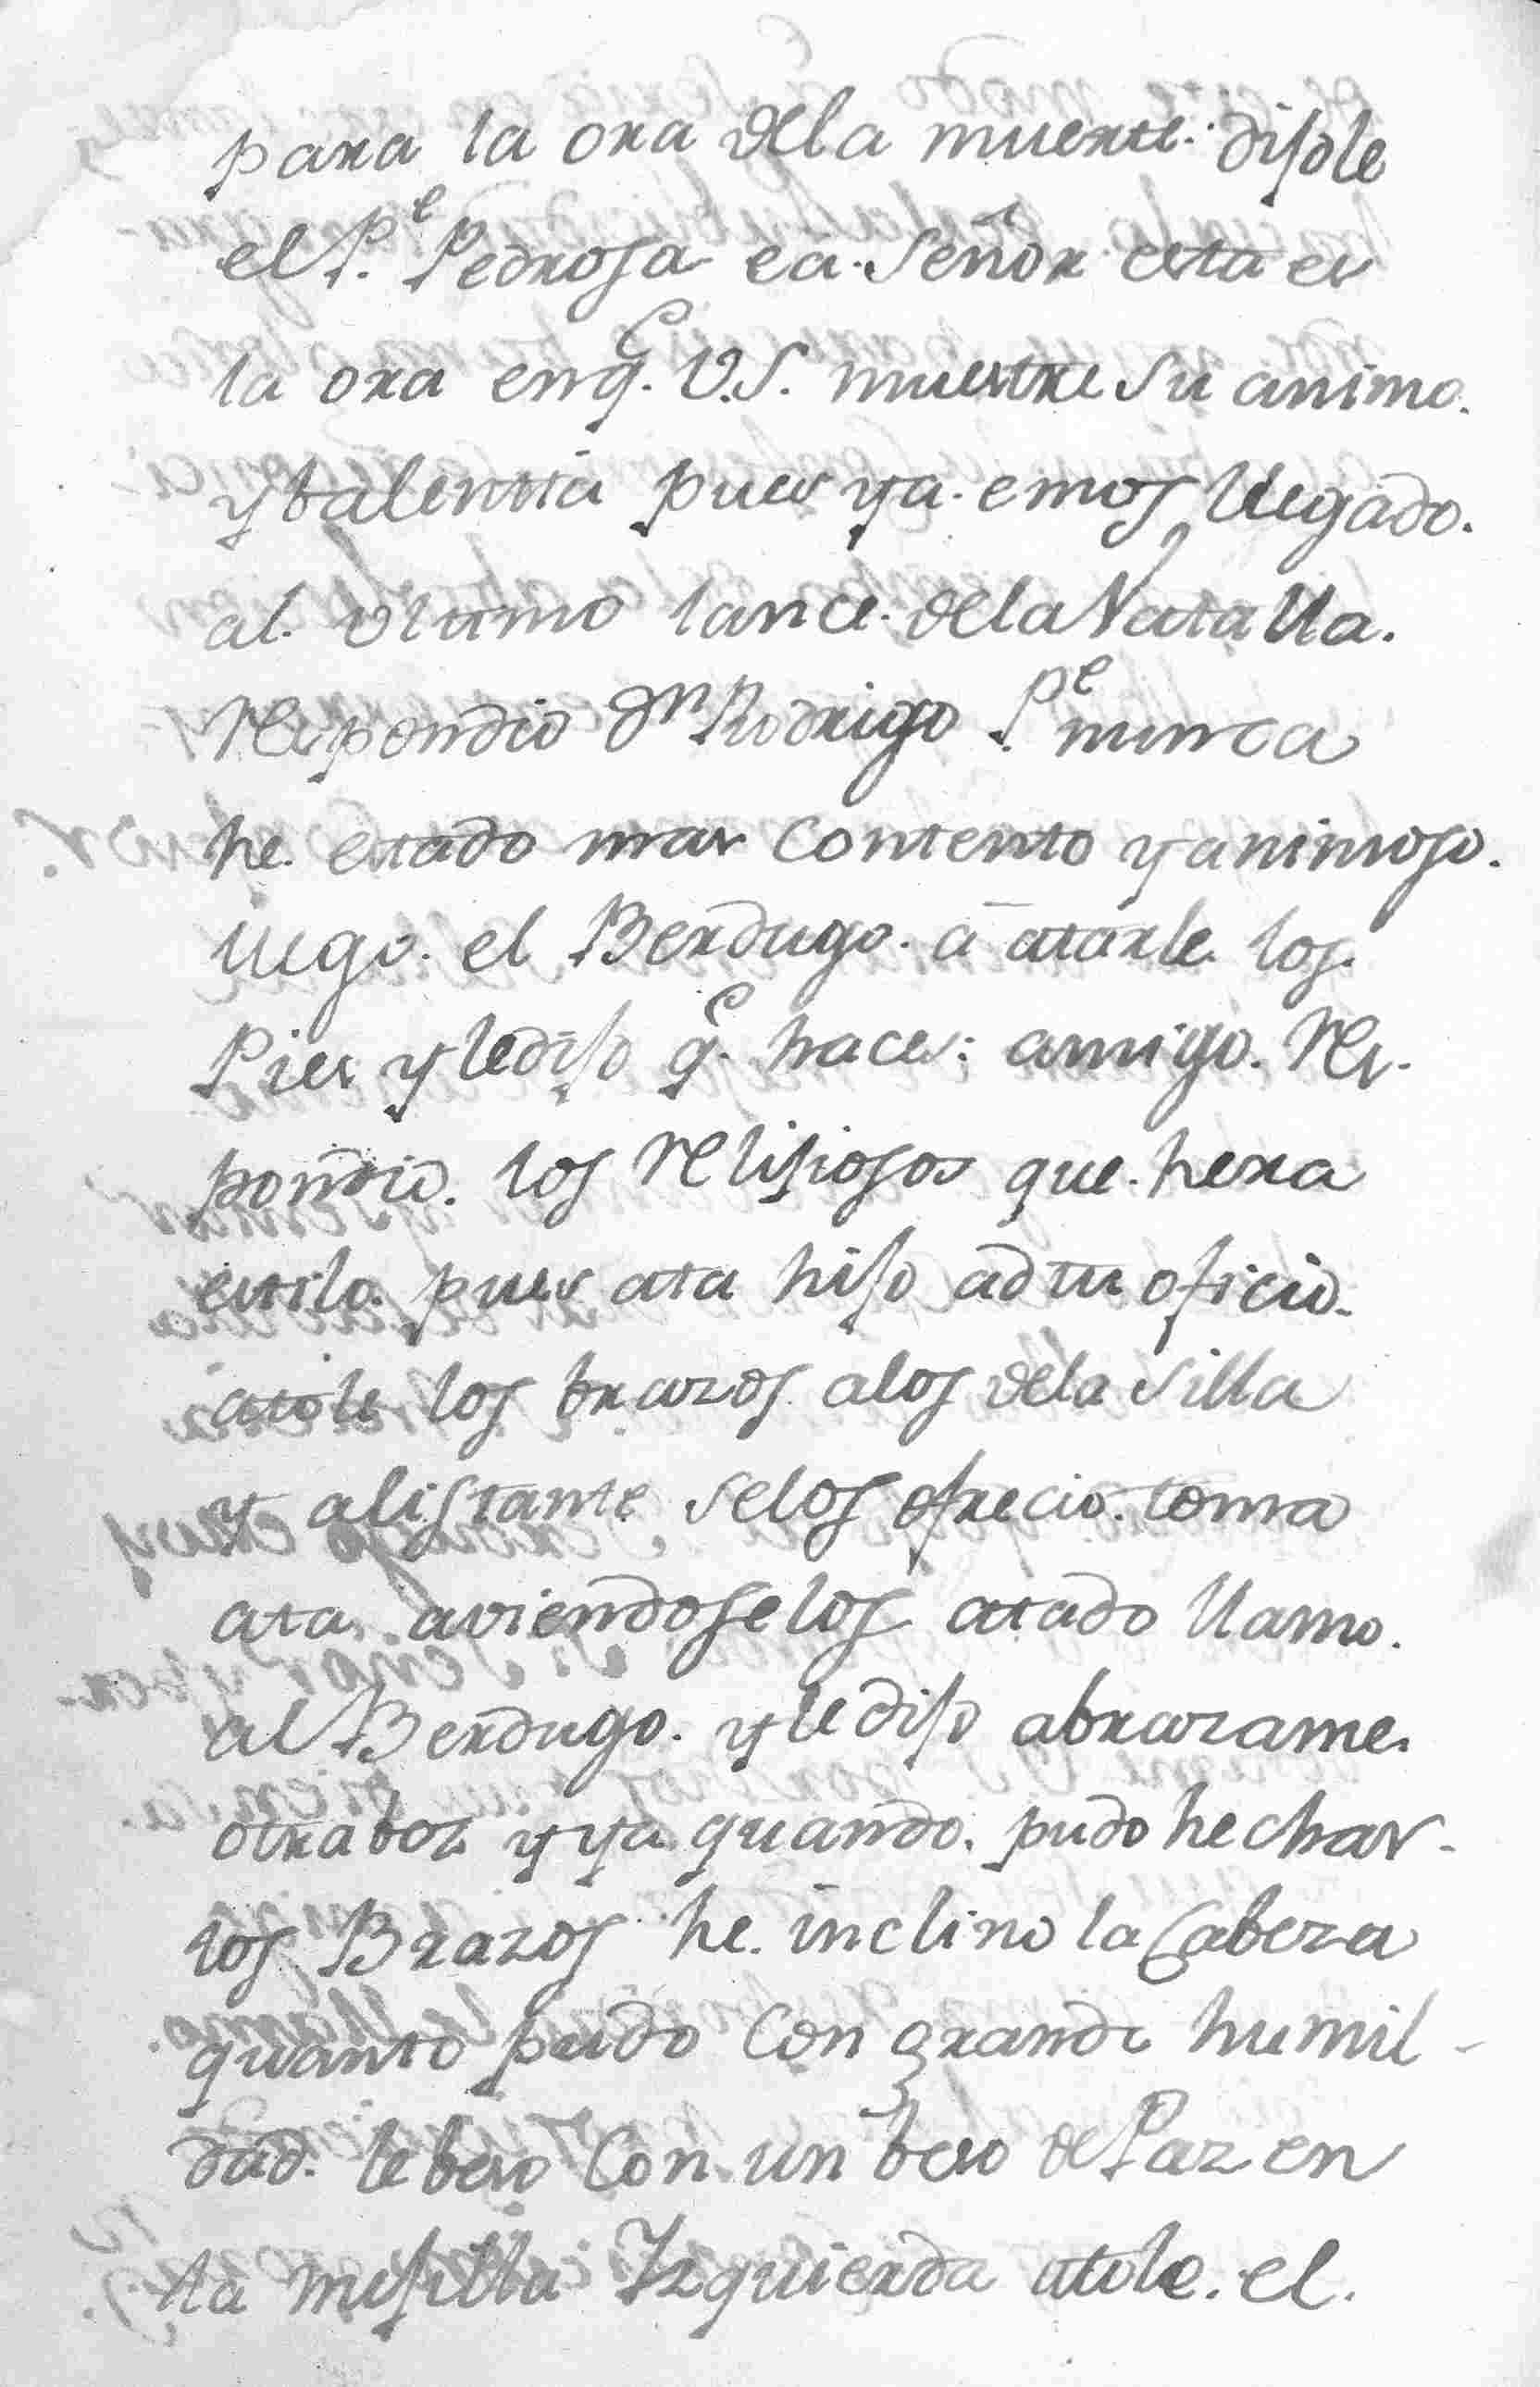 para la ora dela muerte: dijole
el P.e Pedrosa ea. Señor esta es
la ora enq.e V.S. muestre su animo.
y balentia pues ya. emos llegado.
al. vltimo lance. dela Vatalla.
respondio Dn Rodrigo P.e nunca
he. estado mas contento y animoso.
llego. el Berdugo. a atarle. los.
Pies y ledijo q.e haces: amigo. Res-
pondio. los relijiosos que. hera
estilo. pues ata hijo ad tu oficio.
atole los brazos. alos dela silla
y alistante selos ofrecio. toma
ata. aviendoselos atado llamo.
al Berdugo. y le dijo abrazame.
otrabez y ya quando. pudo hechar-
los Brazos he. inclino la Cabeza
quanto pudo Con grande humil-
dad. le beso Con un beso de Paz en
la mejilla Izquierda atole. el.